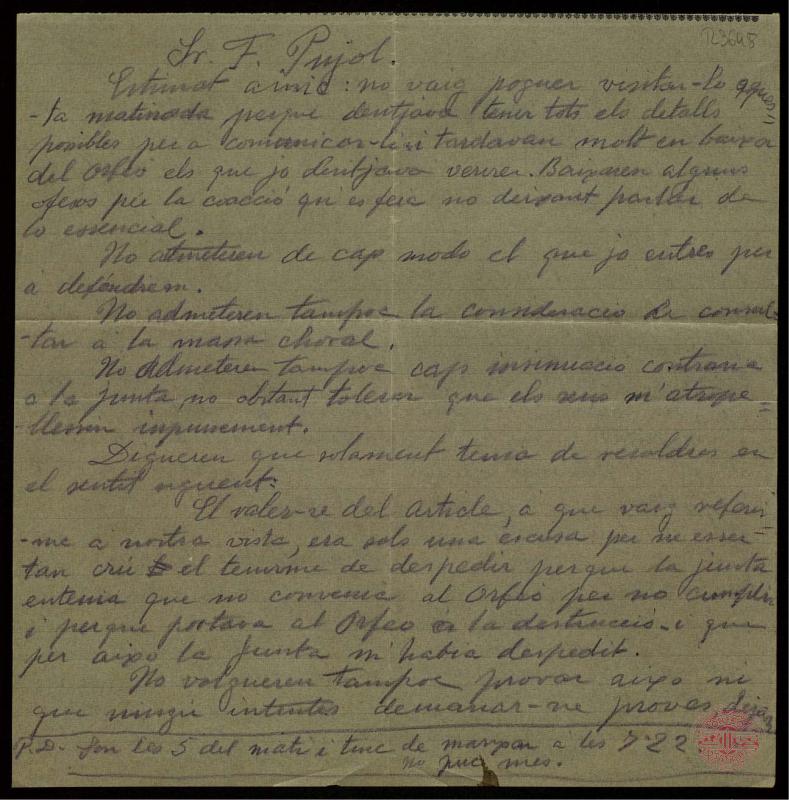 R3648
Sr. F. Pujol.
Estimat amic: no vaig poguer visitar-lo aques-
-ta matinada perque dentjava tenir tots els detalls
posibles per a comunicar-li i tardavan molt en baixar
del Orfeó els que jo dentjava veurer. Baixaren alguns
ofesos per la coacció qu'es feia no deixant parlar de
lo essencial.
No atmeteren de cap modo el que jo entrés per
a deféndrem.
No admeteren tampoc la consideracio de consul-
-tar á la massa choral.
No admeteren tampoc cap insinuació contraria
a la junta, no obstant tolerar que els seus m'atrope-
-llessen inpunement.
Digueren que solament tenia de resoldres en
el sentit seguent:
El valer-se del article, a que vaig referir-
-me a nostra vista, era sols una escusa per no esser
tan cru el tenirme de despedir perque la junta
entenia que no convenia al Orfeó per no cumplir
i perque portava al Orfeó a la destrucció i que
per aixó la Junta m'habia despedit.
No volgueren tampoc provar aixó ni
que ningú intentés demanar-ne proves
P.D. Son les 5 del mati i tinc de marxar á les 7'22
no puc mes.